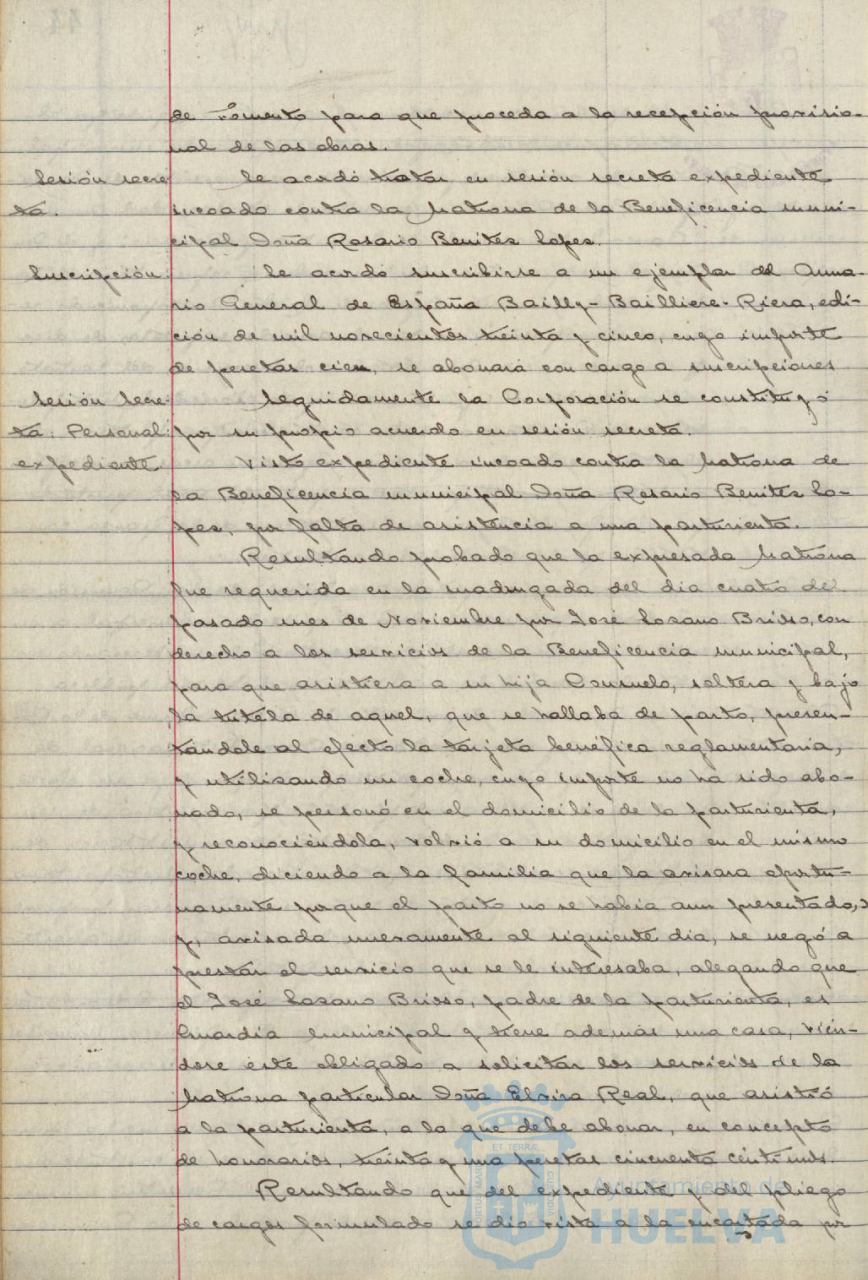 de Fomento para que proceda a la recepción provisio-
nal de las obras.
Sesión secre-
ta.
Se acordó tratar en sesión secreta expediente
incoado contra la Matrona de la Beneficencia muni-
cipal Doña Rosario Benites Lopes.
Suscripción.
Se acordó suscribirse a un ejemplar del Anua-
rio General de España Bailly-Bailliere-Riera, edi-
ción de mil novecientos treinta y cinco, cuyo importe
de pesetas cien, se abonará con cargo a suscripciones
Sesión secre-
ta: Personal:
expediente
Seguidamente la Corporación se constituyó
por su propio acuerdo en sesión secreta.
Visto expediente incoado contra la Matrona de
la Beneficencia municipal Doña Rosario Benites Lo-
pes, por falta de asistencia a una parturienta.
Resultando probado que la expresada Matrona
fue requerida en la madrugada del dia cuatro del
pasado mes de Noviembre por José Lozano Brioso, con
derecho a los servicios de la Beneficencia municipal,
para que asistiera a su hija Consuelo, soltera y bajo
la tutela de aquel, que se hallaba de parto, presen-
tándole al efecto la tarjeta benéfica reglamentaria,
y utilizando un coche, cuyo importe no ha sido abo-
nado, se personó en el domicilio de la parturienta,
y reconociéndola, volvió a su domicilio en el mismo
coche, diciendo a la familia que la avisara oportu-
namente porque el parto no se habia aun presentado,
y, avisada nuevamente al siguiente dia, se negó a
prestar el servicio que se le interesaba, alegando que
el José Lozano Brioso, padre de la parturienta, es
Guardia municipal y tiene además una casa, vién-
dose éste obligado a solicitar los servicios de la
Matrona particular Doña Elvira Real, que asistió
a la parturienta, a la que debe abonar, en concepto
de honorarios, treinta y una pesetas cincuenta céntimos.
Resultando que del expediente y del pliego
de cargos formulado se dio vista a la encartada por
Ayuntamiento de
HUELVA